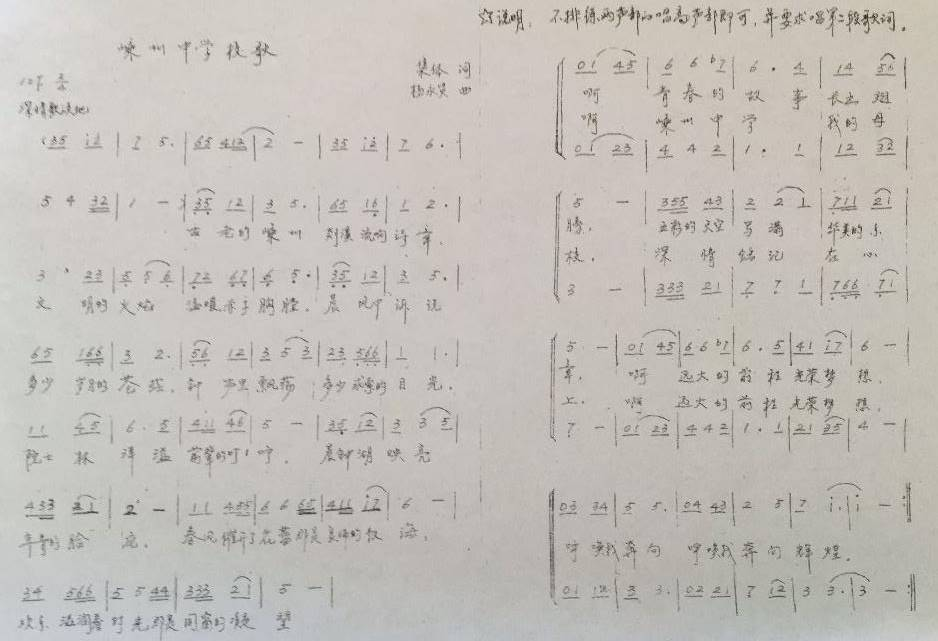 嵊州中学校歌
集体 词
杨永昊 曲
深情歌颂地
(35 i2 | 7 5· | 65 412 | 2 — | 35 i2 | 7 6· |
5 4 32 | 1 — :| 35 12 | 3 5· | 65 16 | 1 2· |
古老的嵊州 剡溪流向诗章,
3 · 23 | 5 5 6 | 72 67 | 6 5· | 35 12 | 3 5· |
文 明的火焰 温暖赤子胸膛。晨风中诉说
65 166 | 3 2· | 56 12 | 3 5 3 | 23 566 | 1 1· |
多少 的苍, 钟声里飘荡 多少求索的目光。
11 45 | 6· 5 | 411 46 | 5 — | 35 12 | 3 3 5 |
院士林洋溢 前辈的叮咛, 晨钟湖映亮
433 21 | 2 — | 11 455 | 6 6 65 | 411 i7 | 6 — |
年青的脸庞。春风催开了花蕾那是良师的教诲,
34 566 | 5 5 44 | 333 21 | 5 — |
欢乐滋润着时光那是同窗的凝望
☆说明: 不排练两声部的唱高声部即可,并要求唱第二段歌词。
01 45 | 6 6 b7 | 6 · 4 | 14 56 |
啊 青春的故事 长出翅
啊 嵊州中学 我的母
01 23 | 4 4 2 | 1 · 1 | 12 32 |
5 — | 355 43 | 2 2 1 | 711 21 |
膀, 五彩的天空写满 华美的乐
校, 深情铭记 在心
3 — | 333 21 | 7 7 1 | 766 71 |
5 — | 01 45 | 6 6 b7 | 6· 5 | 41 i7 | 6 — |
章, 啊 远大的前程 光荣梦想,
上, 啊 远大的前程 光荣梦想,
7 — | 01 23 | 4 4 2 | 1· 1 | 21 35 | 4 — |
03 34 | 5 5· | 04 43 | 2 5 | 7 i· | i — :||
呼唤我奔向 呼唤我奔向辉煌。
01 12 | 3 3· | 02 21 | 7 12 | 3 3· | 3 — :||